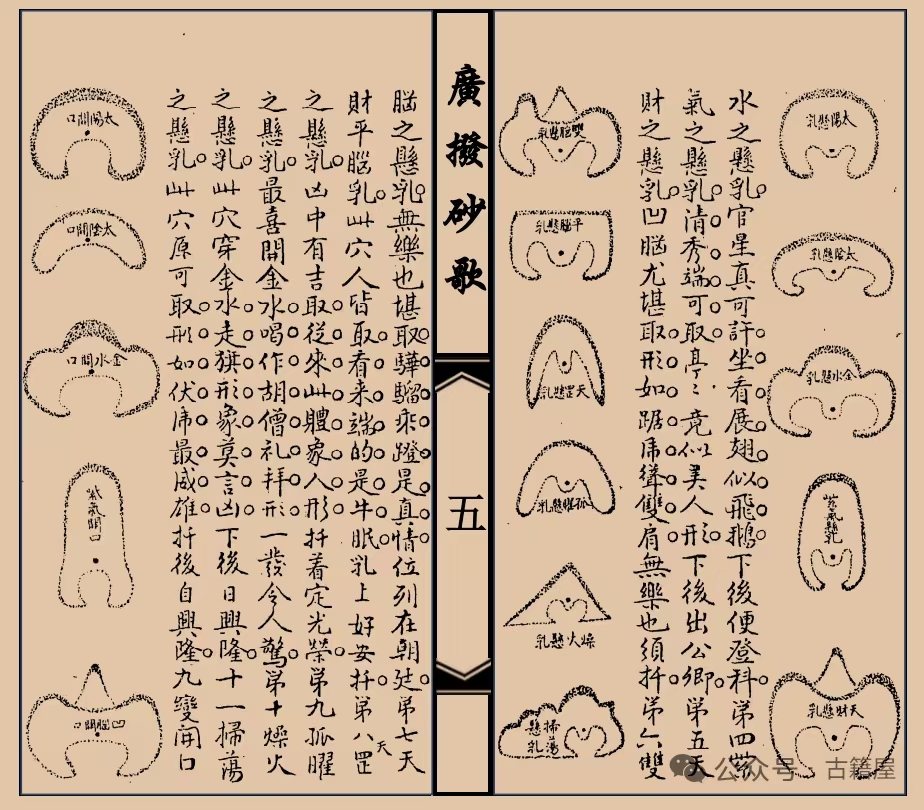 太陽懸乳
太陰懸乳
金水懸乳
紫氣懸乳
天財懸乳
水之懸乳官星真可許坐看展翅似飛鵝下後便登科第四紫
氣之懸乳清秀端可取亭〻竟似美人形下後出公卿第五天
財之懸乳凹腦尤堪取形如踞虎聳雙肩無樂也須扦第六雙
雙腦懸乳
平腦懸乳
天罡懸乳
孤曜懸乳
燥火懸乳
掃蕩懸乳
廣撥砂歌
五
腦之懸乳無樂也堪取驊騮乘蹬是真情位列在朝廷第七天
財平腦乳此穴人皆取看来端的是牛眠乳上好安扦第八天罡
之懸乳凶中有吉取從來此體象人形扦着定光榮第九孤曜
之懸乳最喜開金水喝作胡僧礼拜形一發令人驚第十燥火
之懸乳此穴穿金水走旗形象莫言凶下後日興隆十一掃蕩
之懸乳此穴原可取形如伏虎最威雄扦後自興隆九變開口
太陽開口
太陰開口
金水開口
紫氣開口
凹腦開口
公众号 · 古籍屋